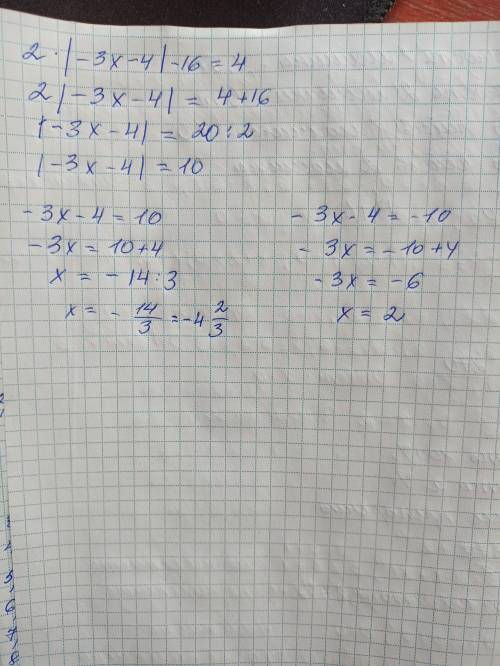 2 · |-3x-4|-16=4
2|-3x-4| = 4+16
|-3x-4| = 20:2
|-3x-4| = 10
-3x-4 = 10
-3x = 10+4
x = -14:3
x = - 14/3 = -4 2/3
-3x-4 = -10
-3x = -10+4
-3x = -6
x = 2
3
6
7
8